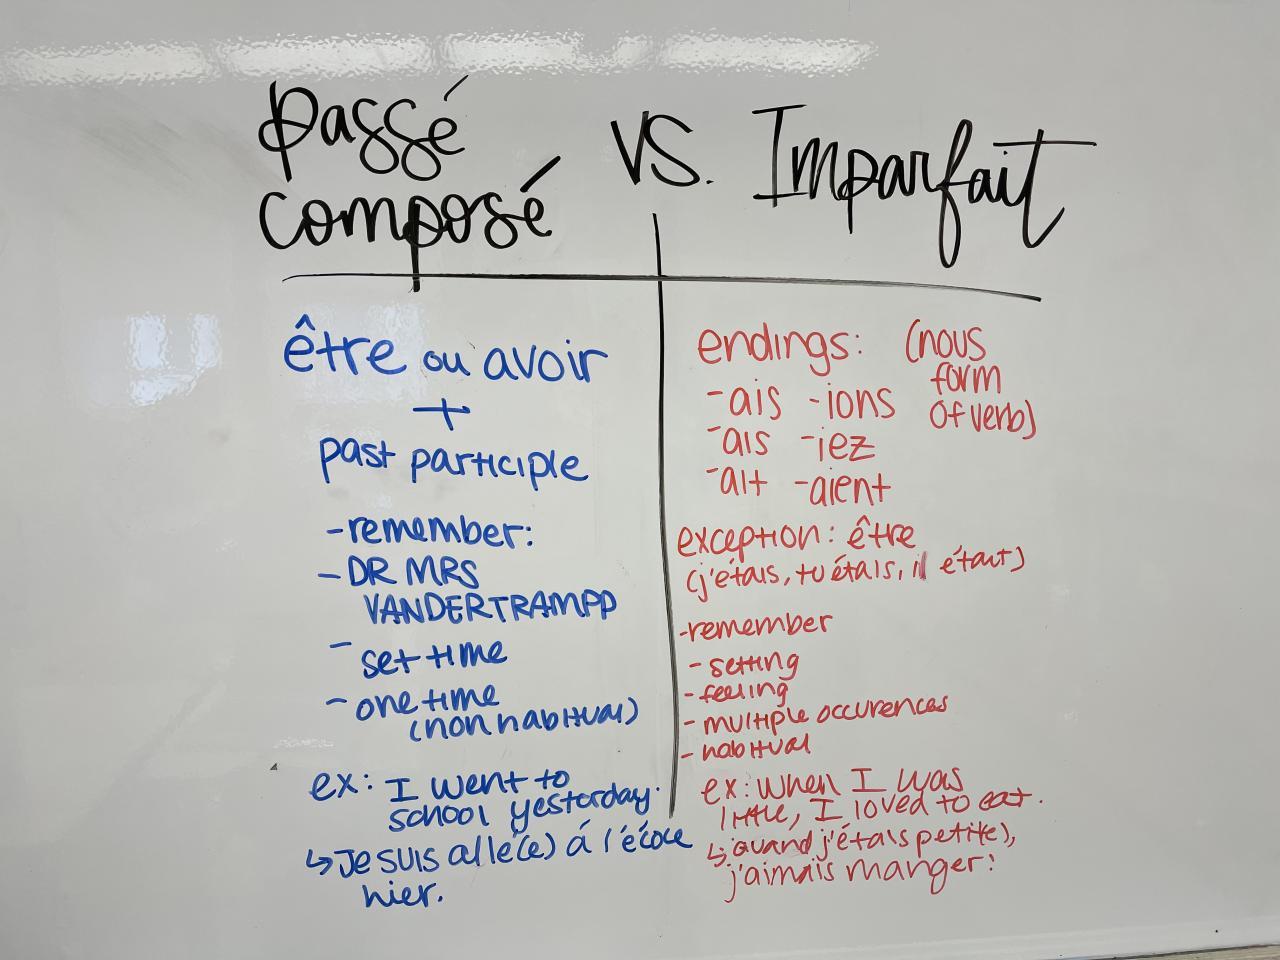 passé
composé
vs. Imparfait
être ou avoir
+
past participle
-remember:
- DR MRS
VANDERTRAMPP
- set time
- one time
(non habitual)
ex: I went to
school yesterday.
↳ Je suis allé(e) á l'école
hier.
endings: (nous
form
of verb)
-ais -ions
-ais -iez
-ait -aient
exception: être
(j'étais, tu étais, il était)
-remember
- setting
- feeling
- multiple occurences
- habitual
ex: When I was
little, I loved to eat.
↳ quand j'étais petite),
j'aimais manger!